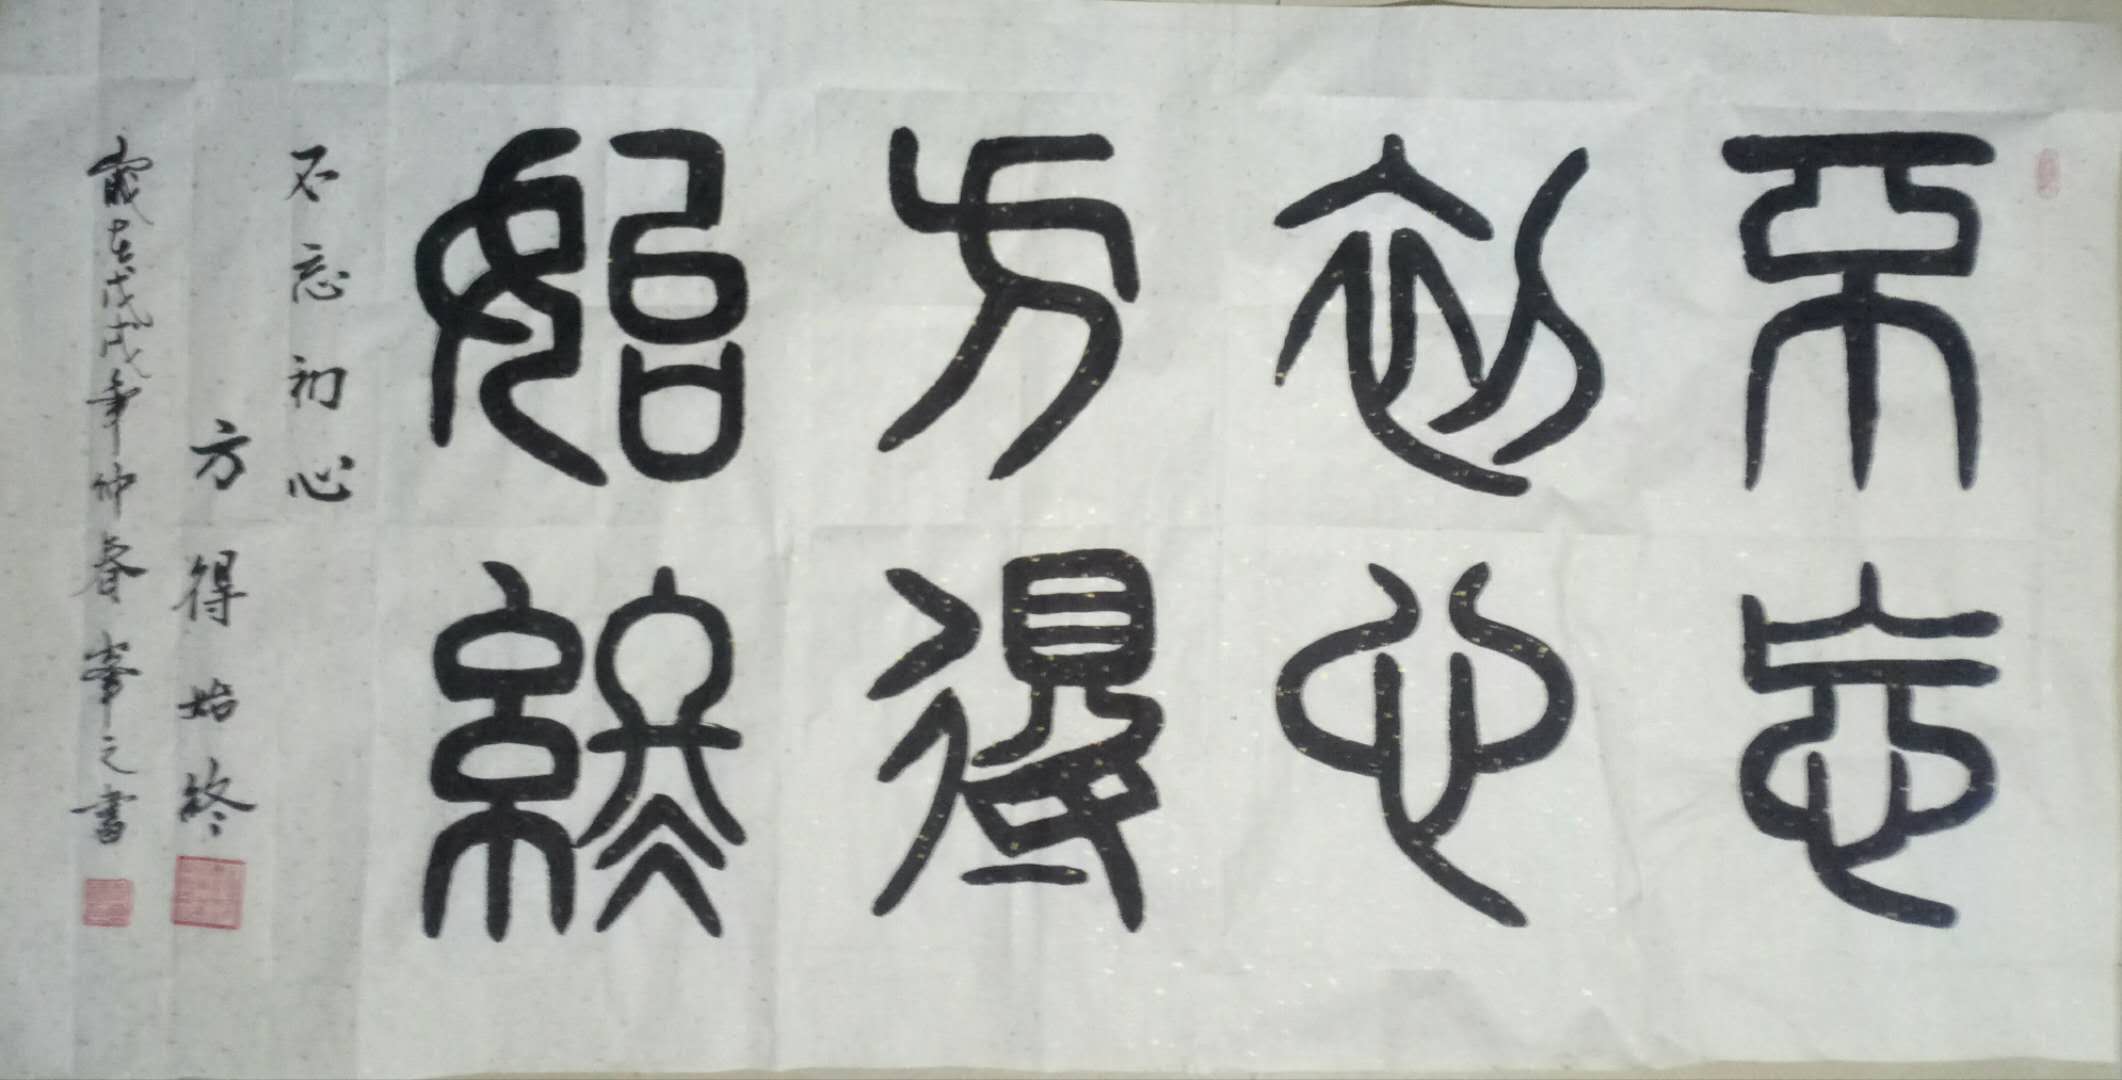 不忘
初心
方得
始終
不忘初心
方得始终
歲在戊戌年仲春峯之書